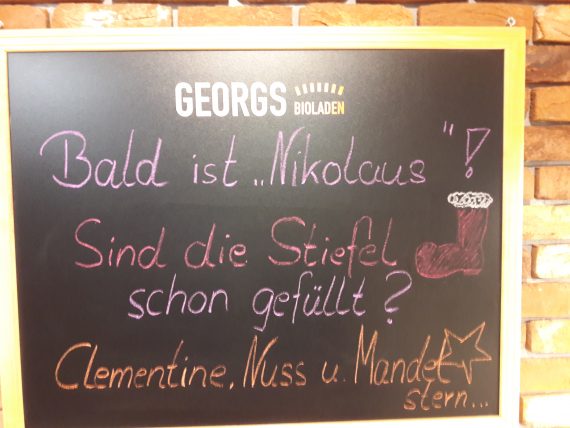 GEORGS BIOLADEN
Bald ist „Nikolaus"!
Sind die Stiefel
schon gefüllt?
Clementine, Nuss u. Mandel
stern...